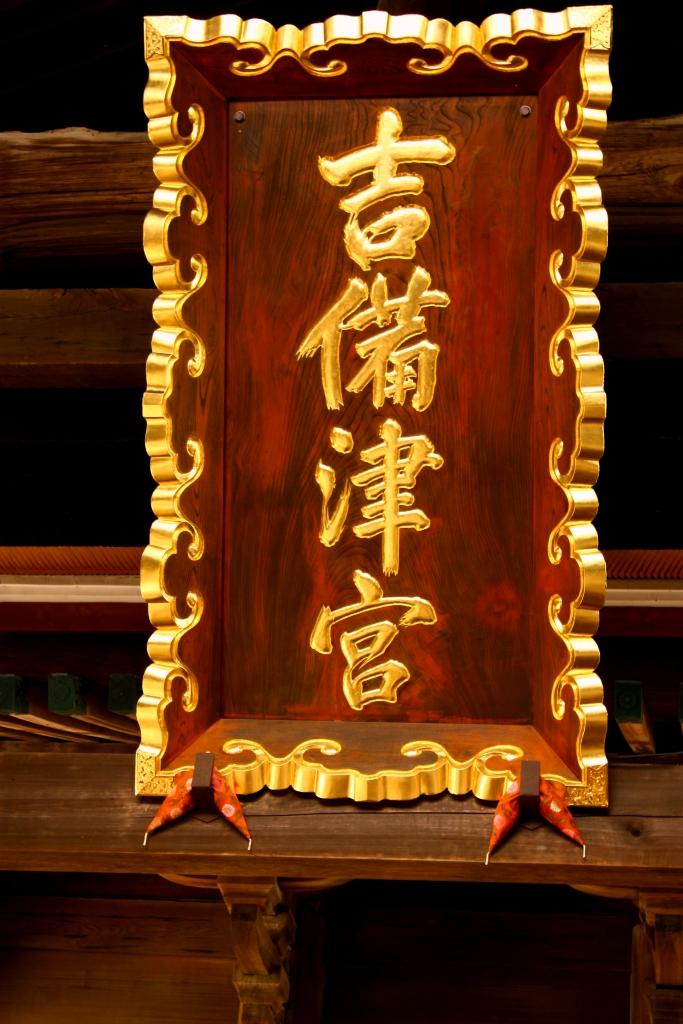 吉備津宮